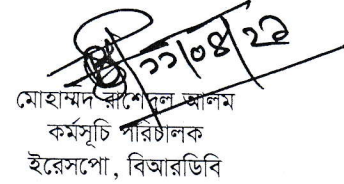 ১১/০৪/২১
মোহাম্মদ রাশেদুল আলম
কর্মসূচি পরিচালক
ইরেসপো, বিআরডিবি